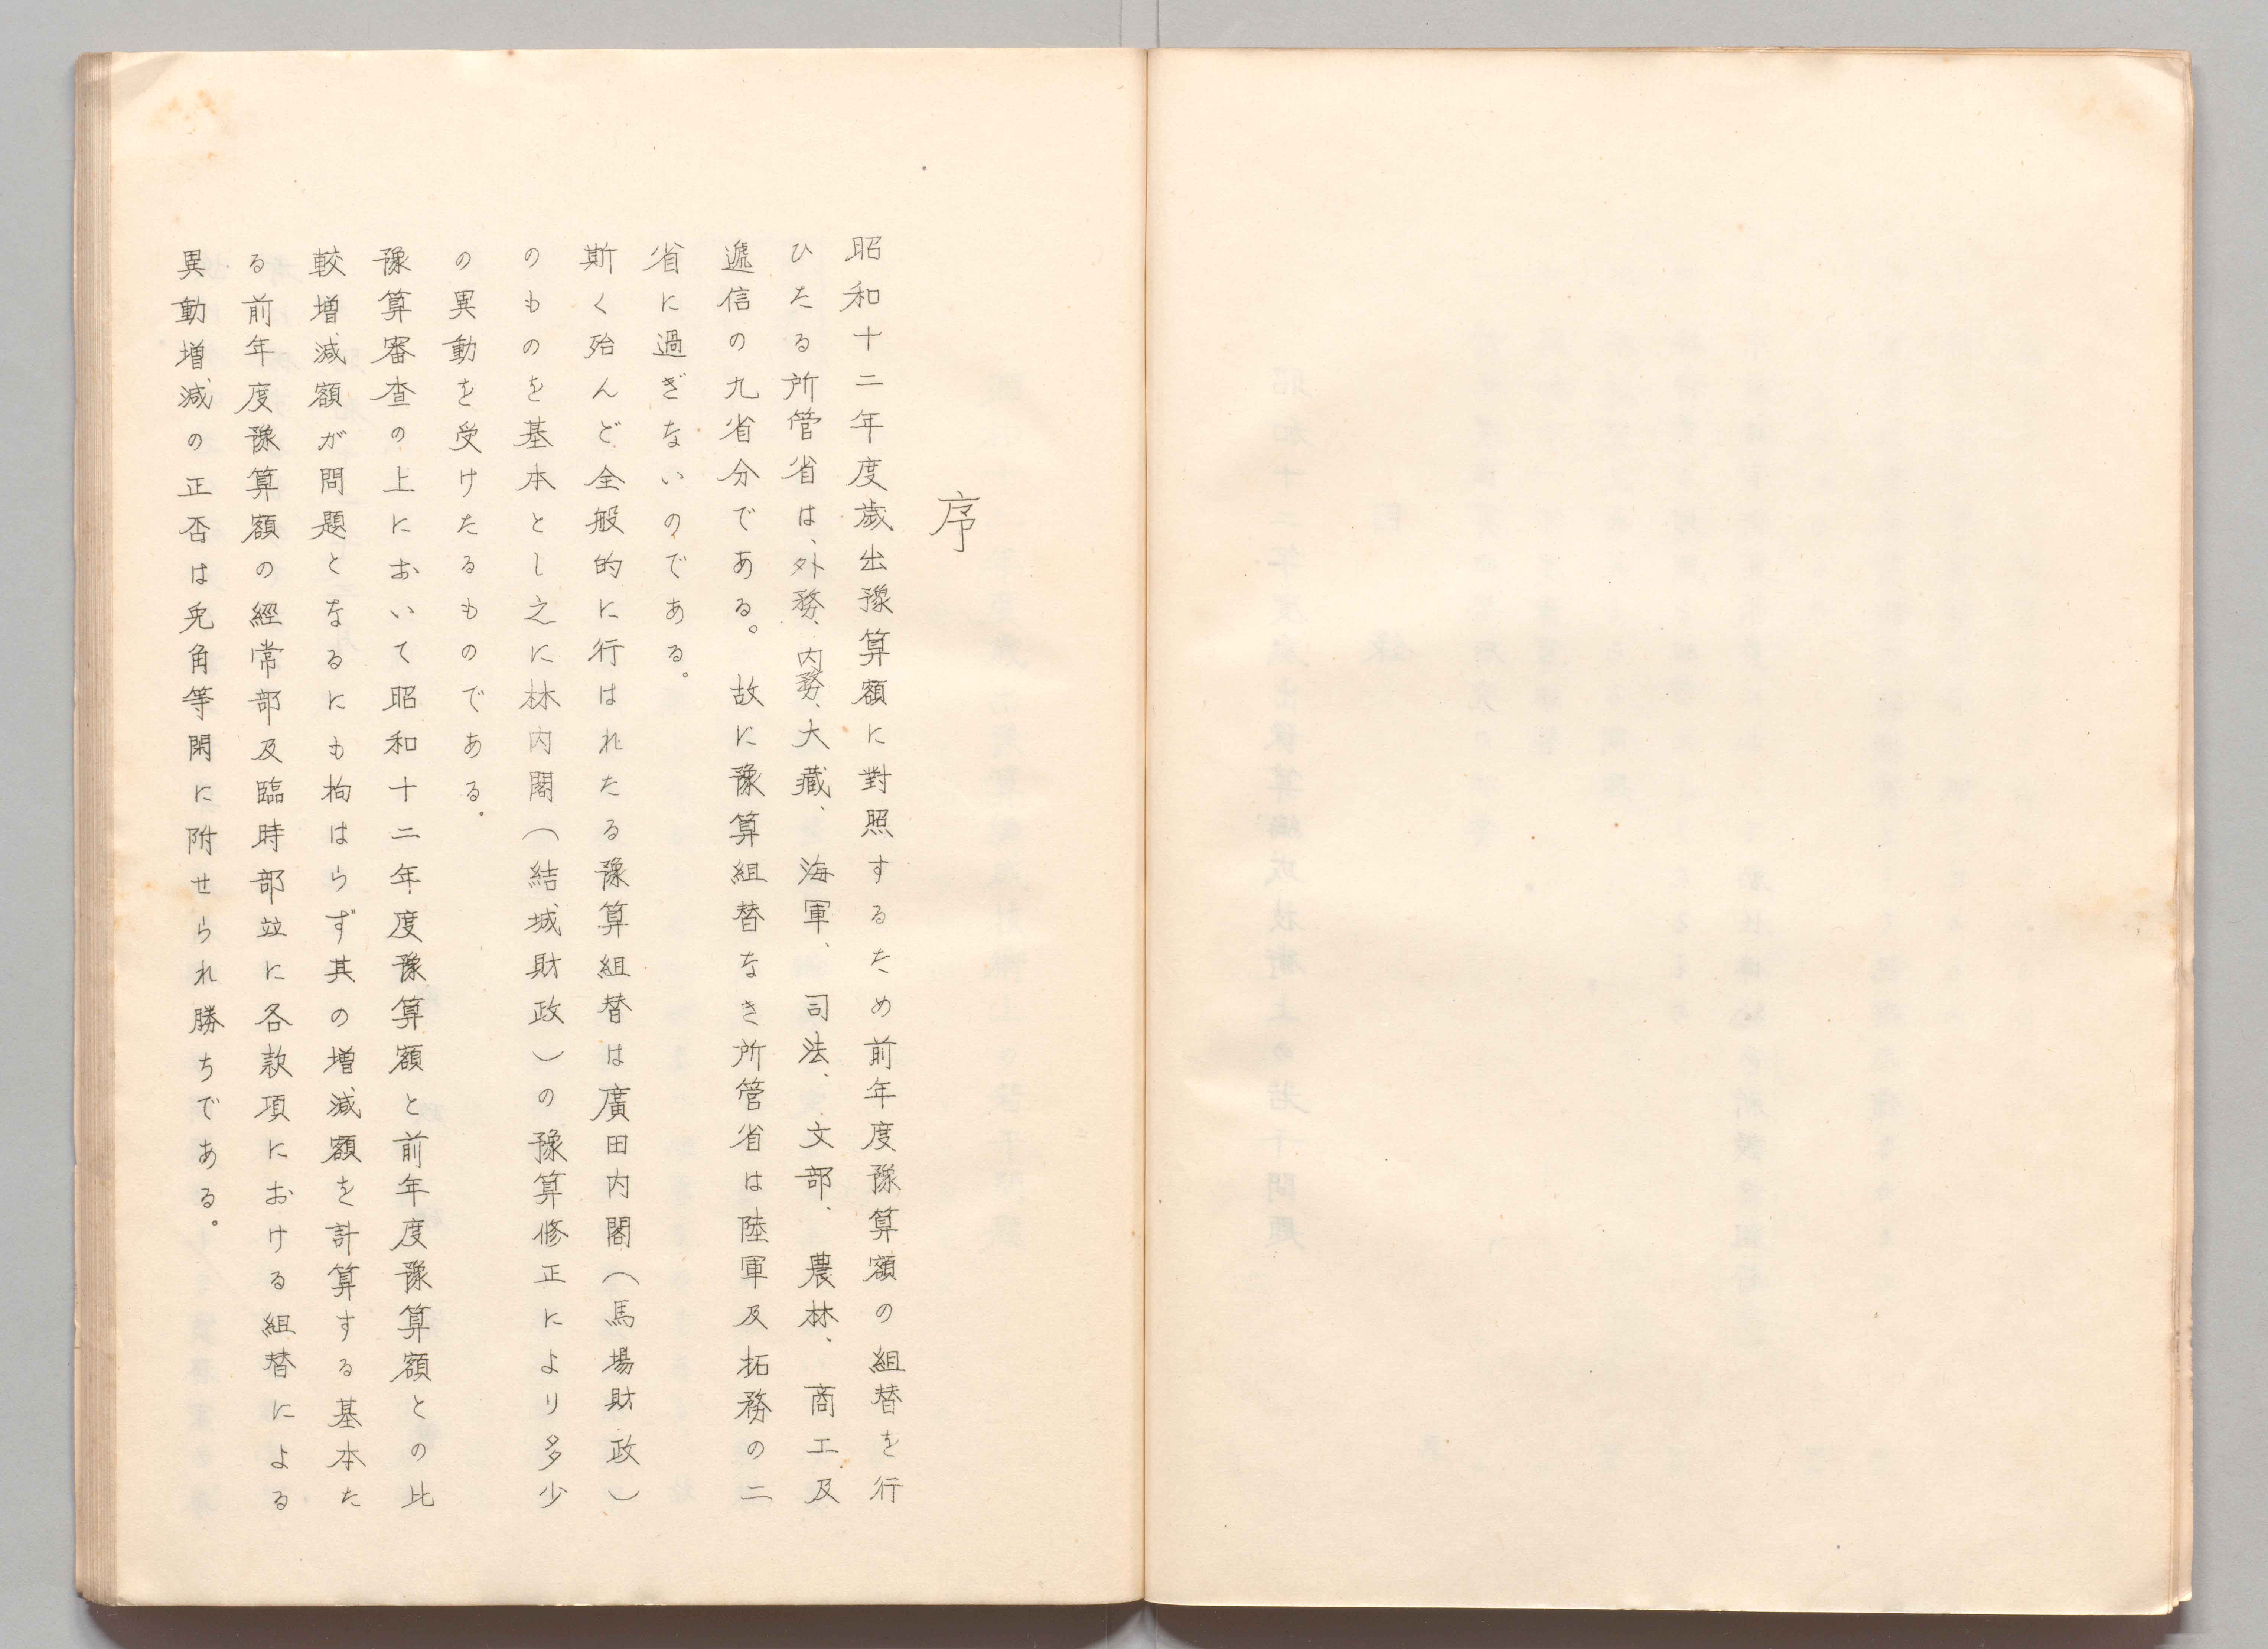 序
昭和十二年度歲出豫算額に對照するため前年度豫算額の組替を行
ひたる所管省は、外務、內務、大藏、海軍、司法、文部、農林、商工及
遞信の九省分である。故に豫算組替なき所管省は陸軍及拓務の二
省に過ぎないのである。
斯く殆んど全般的に行はれたる豫算組替は廣田內閣(馬場財政)
のものを基本とし之に林內閣(結城財政)の豫算修正により多少
の異動を受けたるものである。
豫算審查の上において昭和十二年度豫算額と前年度豫算額との比
較增減額が問題となるにも拘はらず其の增減額を計算する基本た
る前年度豫算額の經常部及臨時部竝に各款項における組替による
異動增減の正否は兎角等閑に附せられ勝ちである。